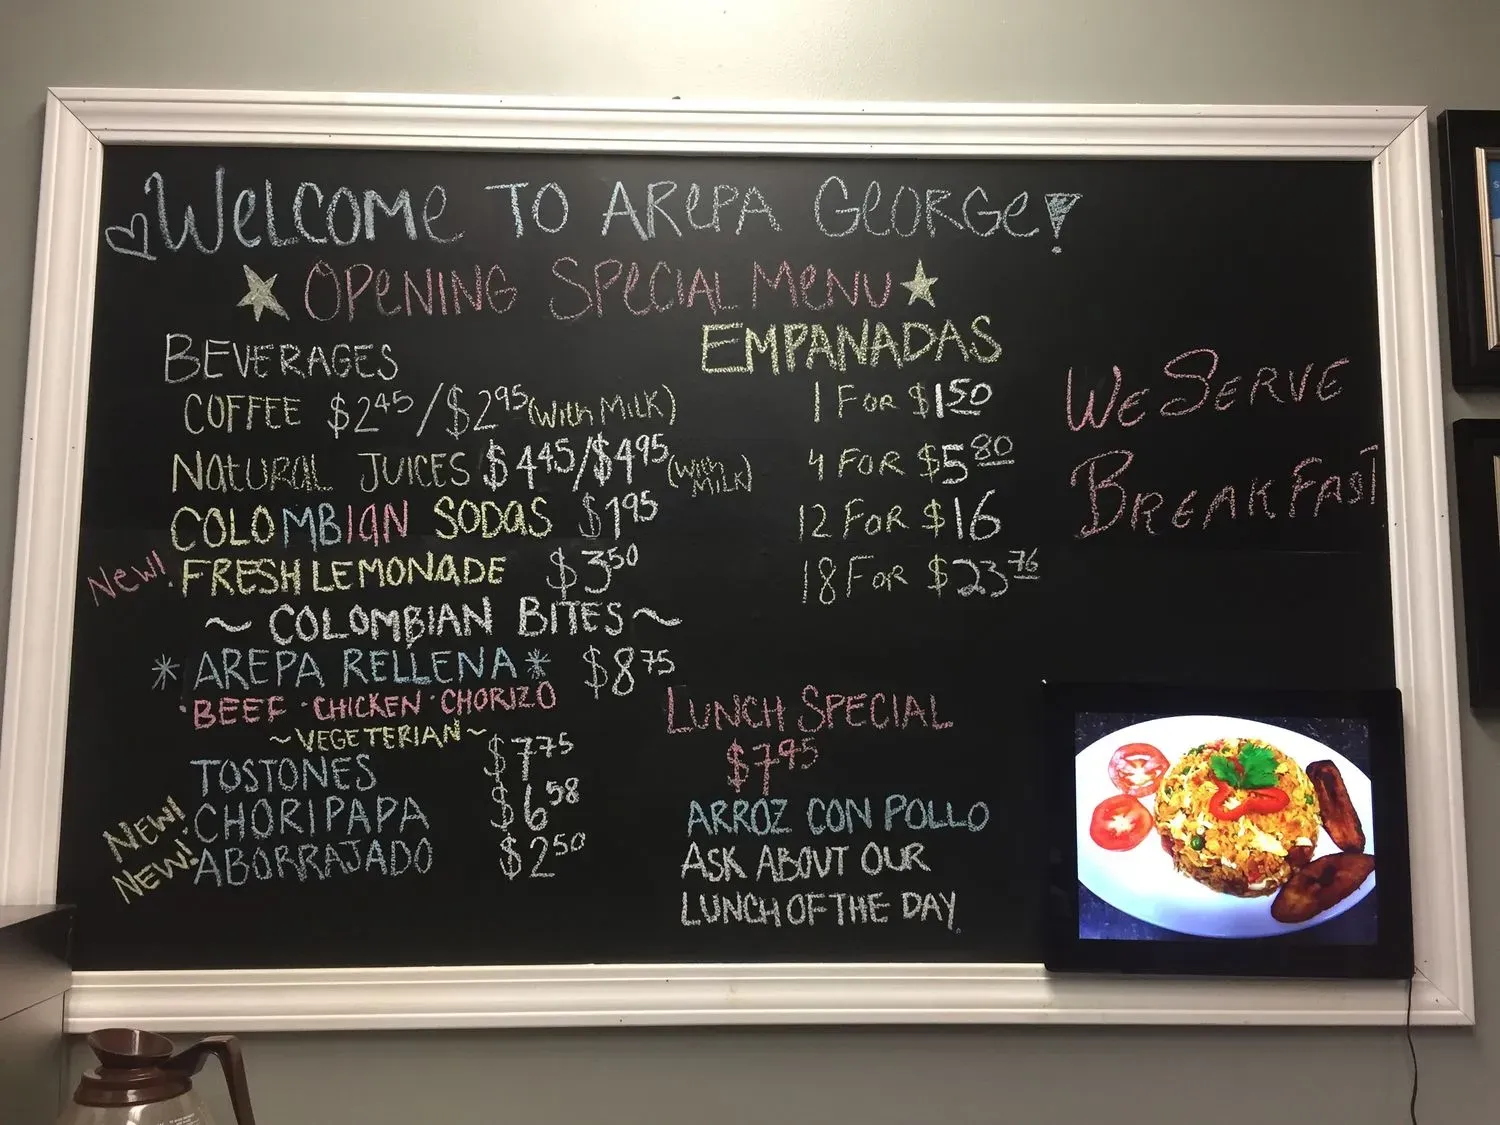 Welcome to Arepa George!
Opening Special Menu
BEVERAGES
COFFEE $2.45/$2.95 (with MILK)
NATURAL JUICES $4.45/$4.95 (with MILK)
COLOMBIAN SODAS $1.95
New! FRESH LEMONADE $3.50
~ COLOMBIAN BITES ~
* AREPA RELLENA * $8.75
BEEF · CHICKEN · CHORIZO
~ VEGETERIAN ~
TOSTONES $7.75
NEW! CHORIPAPA $6.58
NEW! ABORRAJADO $2.50
EMPANADAS
1 FOR $1.50
4 FOR $5.80
12 FOR $16
18 FOR $23.76
WE SERVE
BREAKFAST
LUNCH SPECIAL
$7.95
ARROZ CON POLLO
ASK ABOUT OUR
LUNCH OF THE DAY.